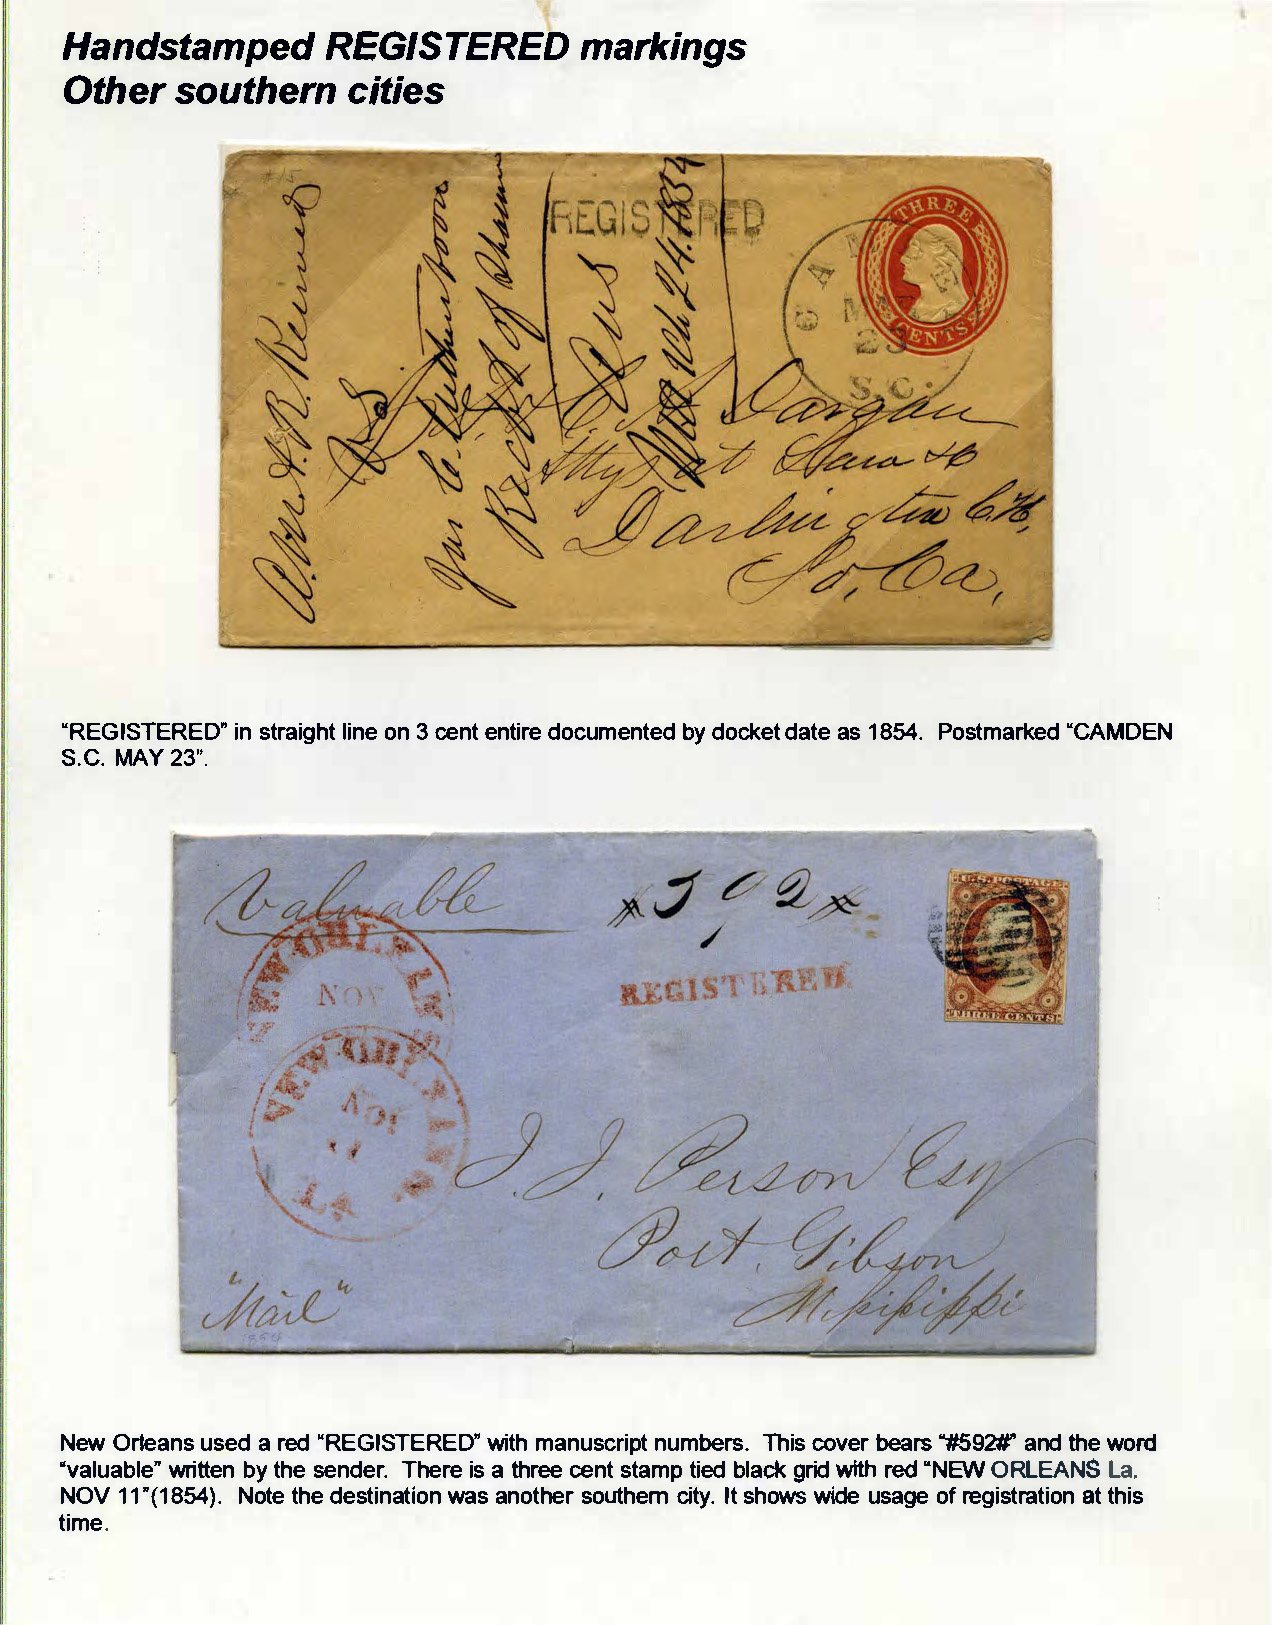 Handstamped REGISTERED markings
Other southern cities
#15
REGISTERED
THREE
CENTS
CAMDEN
MAY
23
S.C.
Dargan
Attys at Law &c
Darlington C.H,
So, Ca,
Recd of
March 24. 1854
"REGISTERED" in straight line on 3 cent entire documented by docket date as 1854. Postmarked "CAMDEN
S.C. MAY 23".
Valuable
#592#
REGISTERED
U.S. POSTAGE
THREE CENTS
NEW ORLEANS
NOV
NEW ORLEANS
NOV
11
LA
J. J. Person Esq
Port Gibson
Mississippi
"Mail"
1854
New Orleans used a red "REGISTERED" with manuscript numbers. This cover bears "#592#" and the word
"valuable" written by the sender. There is a three cent stamp tied black grid with red "NEW ORLEANS La.
NOV 11"(1854). Note the destination was another southern city. It shows wide usage of registration at this
time.